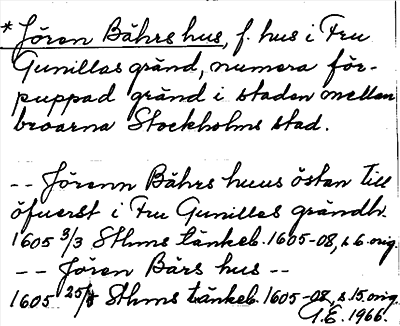 * Jören Bährs hus, f. hus i Fru
Gunillas gränd, numera för-
puppad gränd i staden mellan
broarna Stockholms stad.
-- Jörenn Bährs huus östan till
öfuerst i Fru Gunillas grändh.
1605 3/3 Sthms tänkeb. 1605-08, s. 6. orig.
-- Jören Bärs hus --
1605 Sthms tänkeb. 1605-08, s. 15. orig.
G.E. 1966.